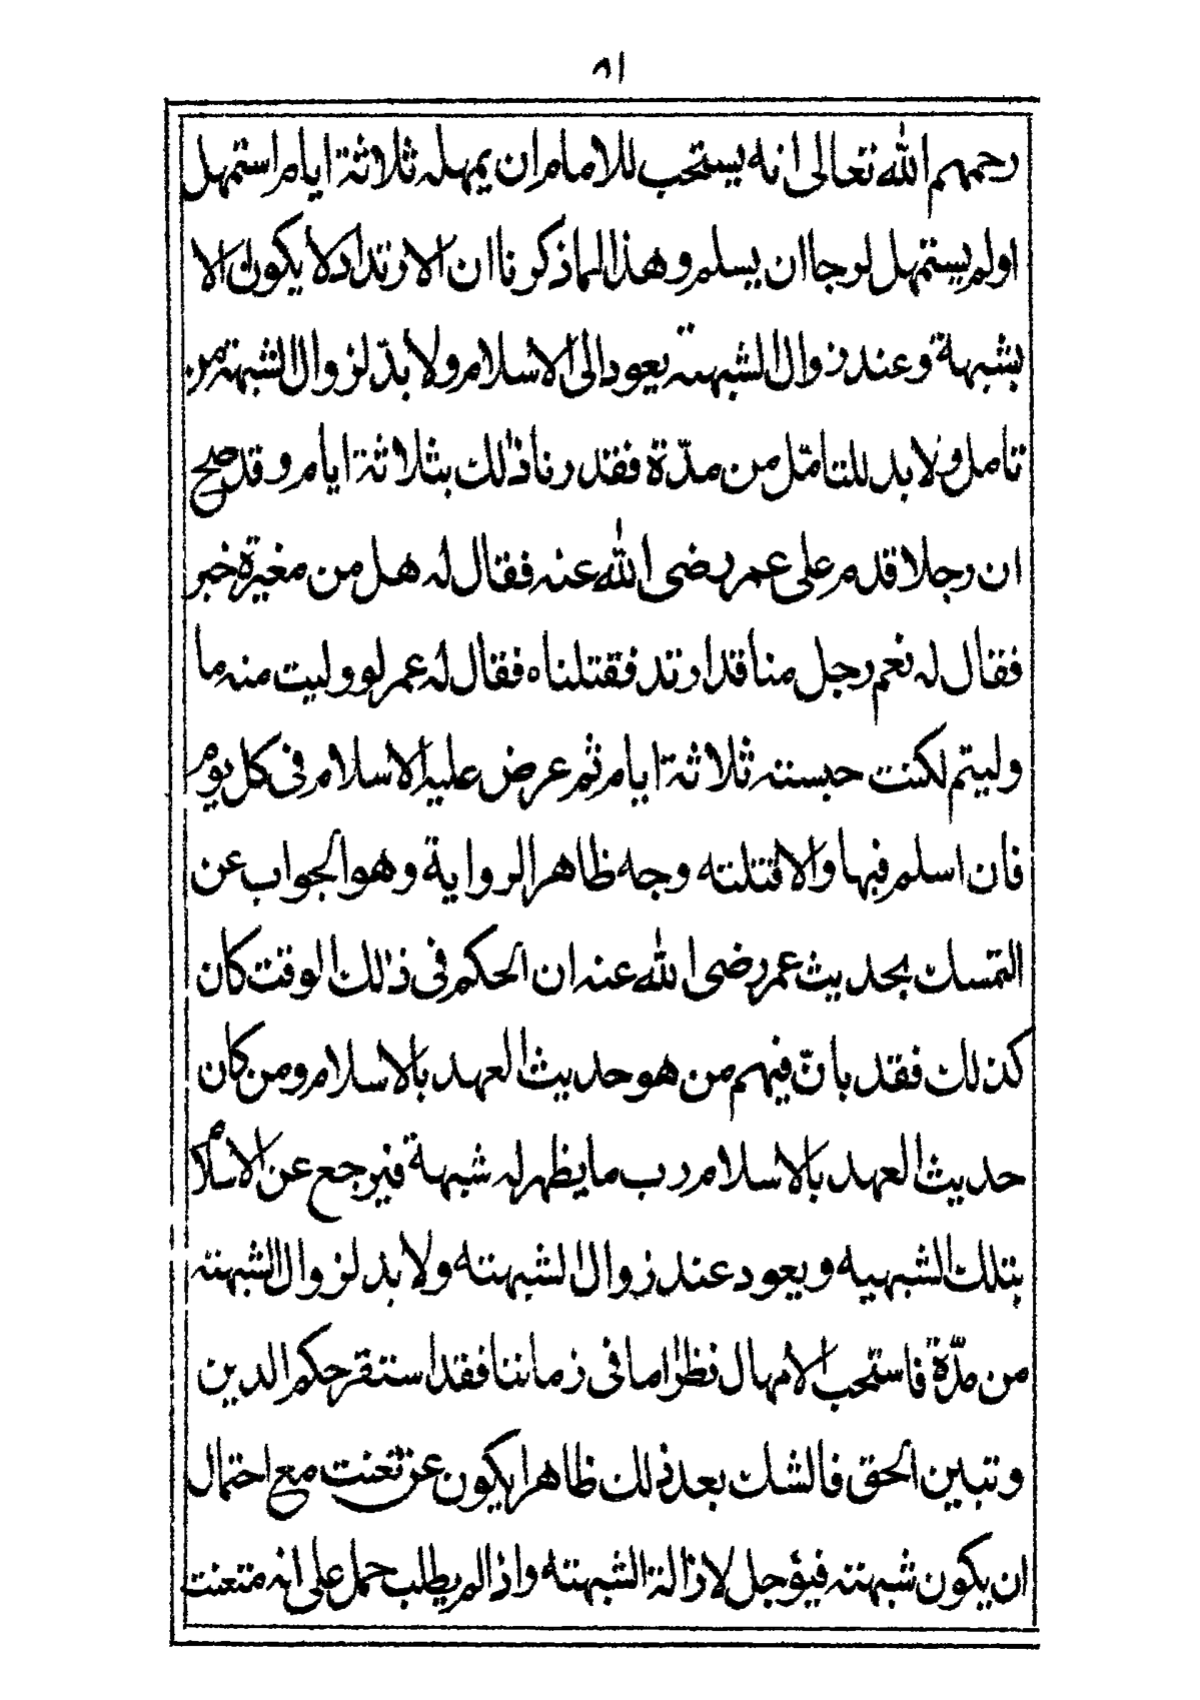 ٨١
رحمهم الله تعالى انه يستحب للامام ان يمهله ثلاثة ايام استمهل
اولم يستمهل لرجا ان يسلم وهذا لما ذكرنا ان الارتداد لا يكون الا
بشبهة وعند زوال الشبهة يعود الى الاسلام ولا بدّ لزوال الشبهة من
تامل ولا بد للتامّل من مدّة فقدرنا ذلك بثلاثة ايام وقد صح
ان رجلا قدم على عمر رضى الله عنه فقال له هل من مغيرة خبر
فقال له نعم رجل منا قد ارتد فقتلناه فقال له عمر لو وليت منه ما
وليتم لكنت حبسته ثلاثة ايام ثم عرض عليه الاسلام فى كل يوم
فان اسلم فبها والا قتلته وجه ظاهر الرواية وهو الجواب عن
التمسك بحديث عمر رضى الله عنه ان الحكم فى ذلك الوقت كان
كذلك فقد بانّ فيهم من هو حديث العهد بالاسلام ومن كان
حديث العهد بالاسلام رب ما يظهر له شبهة فيرجع عن الاسلام
بتلك الشبهيه ويعود عند زوال الشبهته ولا بد لزوال الشبهته
من مدّة فاستحب الامهال نظرا اما فى زماننا فقد استقر حكم الدين
وتبين الحق فالشك بعد ذلك ظاهرا يكون عن تعنت مع احتمال
ان يكون شبهته فيؤجل لازالة الشبهته واذا لم يطلب حمل على انه متعنت